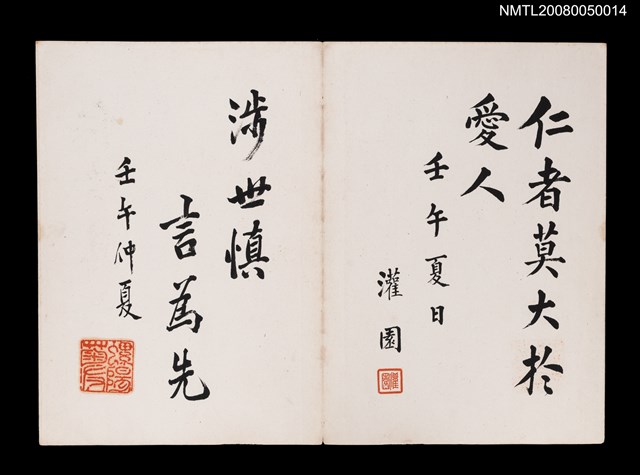 NMTL20080050014
仁者莫大於
愛人
壬午夏日
灌園
灌園
涉世慎
言為先
壬午仲夏